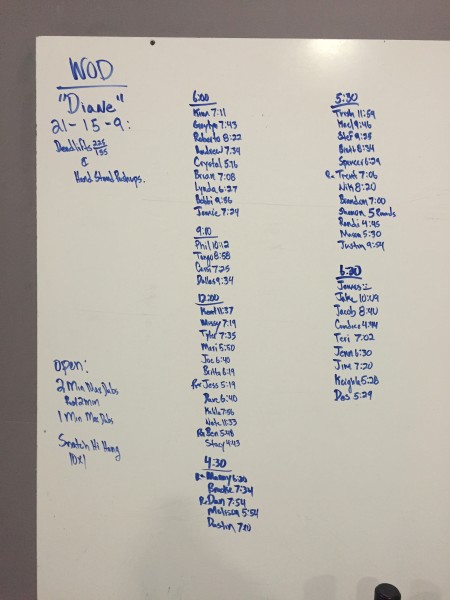 WOD
"Diane"
21-15-9:
Deadlifts 225/155
&
Hand Stand Pushups.
open:
2 Min Max Dubs
Rest 2 min
1 Min Max Dubs
Snatch Hi Hang
10x1
6:00
7:11
7:43
Roberto 8:22
Andrew 7:34
Crystal 5:16
Brian 7:08
Lynda 6:27
Bobbi 9:56
7:24
9:10
Phil 10:12
8:58
7:25
Dallas 9:34
12:00
11:37
Missy 7:19
Tyler 7:35
Mari 5:50
Joe 6:40
Britta 6:19
Rx Jess 5:19
Dave 6:40
7:56
Nate 11:33
Rx Ben 5:48
Stacy 4:43
4:30
Rx Manny 6:20
Brooke 7:34
Rx Dan 7:54
Melison 5:54
Dustin
5:30
11:59
9:46
Stef 9:35
8:34
Spencer 6:29
Rx Trent 7:06
Nik 8:20
Brandon 7:00
Shannon 5 Rounds
Randi 4:45
Mason 5:30
Justin 9:54
6:30
James
Jake 10:09
Jacob 8:40
Candice 4:44
Teri 7:02
Jenn 6:30
Jim 7:20
Keighla 5:28
Das 5:29